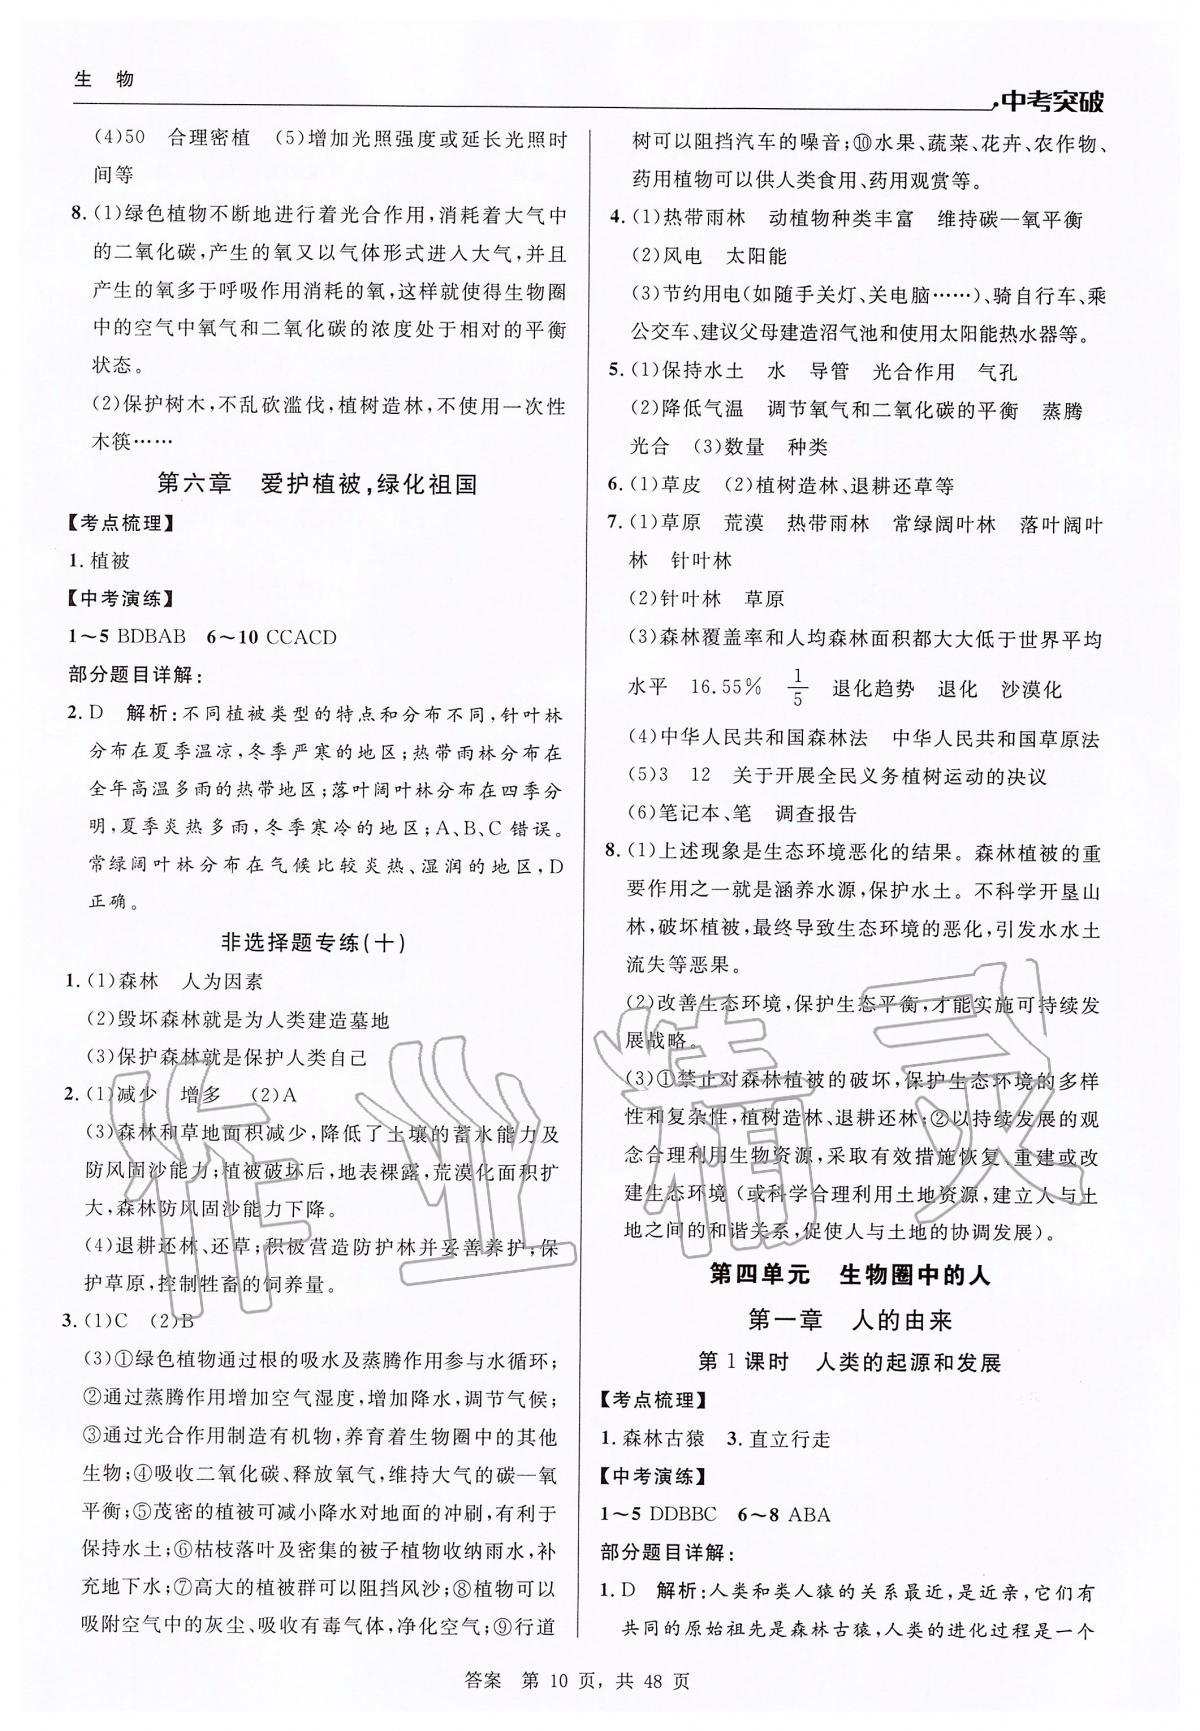 生 物
中考突破
(4)50 合理密植 (5)增加光照强度或延长光照时
间等
8.(1)绿色植物不断地进行着光合作用,消耗着大气中
的二氧化碳,产生的氧又以气体形式进入大气,并且
产生的氧多于呼吸作用消耗的氧,这样就使得生物圈
中的空气中氧气和二氧化碳的浓度处于相对的平衡
状态。
(2)保护树木,不乱砍滥伐,植树造林,不使用一次性
木筷……
第六章 爱护植被,绿化祖国
【考点梳理】
1.植被
【中考演练】
1～5 BDBAB 6～10 CCACD
部分题目详解:
2. D 解析:不同植被类型的特点和分布不同,针叶林
分布在夏季温凉,冬季严寒的地区;热带雨林分布在
全年高温多雨的热带地区;落叶阔叶林分布在四季分
明,夏季炎热多雨,冬季寒冷的地区;A、B、C 错误。
常绿阔叶林分布在气候比较炎热、湿润的地区,D
正确。
非选择题专练(十)
1.(1)森林 人为因素
(2)毁坏森林就是为人类建造墓地
(3)保护森林就是保护人类自己
2.(1)减少 增多 (2)A
(3)森林和草地面积减少,降低了土壤的蓄水能力及
防风固沙能力;植被破坏后,地表裸露,荒漠化面积扩
大,森林防风固沙能力下降。
(4)退耕还林、还草;积极营造防护林并妥善养护;保
护草原,控制牲畜的饲养量。
3.(1)C (2)B
(3)①绿色植物通过根的吸水及蒸腾作用参与水循环;
②通过蒸腾作用增加空气湿度,增加降水,调节气候;
③通过光合作用制造有机物,养育着生物圈中的其他
生物;④吸收二氧化碳、释放氧气,维持大气的碳—氧
平衡;⑤茂密的植被可减小降水对地面的冲刷,有利于
保持水土;⑥枯枝落叶及密集的被子植物收纳雨水,补
充地下水;⑦高大的植被群可以阻挡风沙;⑧植物可以
吸附空气中的灰尘、吸收有毒气体,净化空气;⑨行道
树可以阻挡汽车的噪音;⑩水果、蔬菜、花卉、农作物、
药用植物可以供人类食用、药用观赏等。
4.(1)热带雨林 动植物种类丰富 维持碳—氧平衡
(2)风电 太阳能
(3)节约用电(如随手关灯、关电脑……)、骑自行车、乘
公交车、建议父母建造沼气池和使用太阳能热水器等。
5.(1)保持水土 水 导管 光合作用 气孔
(2)降低气温 调节氧气和二氧化碳的平衡 蒸腾
光合 (3)数量 种类
6.(1)草皮 (2)植树造林、退耕还草等
7.(1)草原 荒漠 热带雨林 常绿阔叶林 落叶阔叶
林 针叶林
(2)针叶林 草原
(3)森林覆盖率和人均森林面积都大大低于世界平均
水平 16.55% 1/5 退化趋势 退化 沙漠化
(4)中华人民共和国森林法 中华人民共和国草原法
(5)3 12 关于开展全民义务植树运动的决议
(6)笔记本、笔 调查报告
8.(1)上述现象是生态环境恶化的结果。森林植被的重
要作用之一就是涵养水源,保护水土。不科学开垦山
林,破坏植被,最终导致生态环境的恶化,引发水水土
流失等恶果。
(2)改善生态环境,保护生态平衡,才能实施可持续发
展战略。
(3)①禁止对森林植被的破坏,保护生态环境的多样
性和复杂性,植树造林、退耕还林;②以持续发展的观
念合理利用生物资源,采取有效措施恢复、重建或改
建生态环境（或科学合理利用土地资源,建立人与土
地之间的和谐关系,促使人与土地的协调发展）。
第四单元 生物圈中的人
第一章 人的由来
第 1 课时 人类的起源和发展
【考点梳理】
1.森林古猿 3.直立行走
【中考演练】
1～5 DDBBC 6～8 ABA
部分题目详解:
1. D 解析:人类和类人猿的关系最近,是近亲,它们有
共同的原始祖先是森林古猿,人类的进化过程是一个
作业精灵
答案 第 10 页,共 48 页